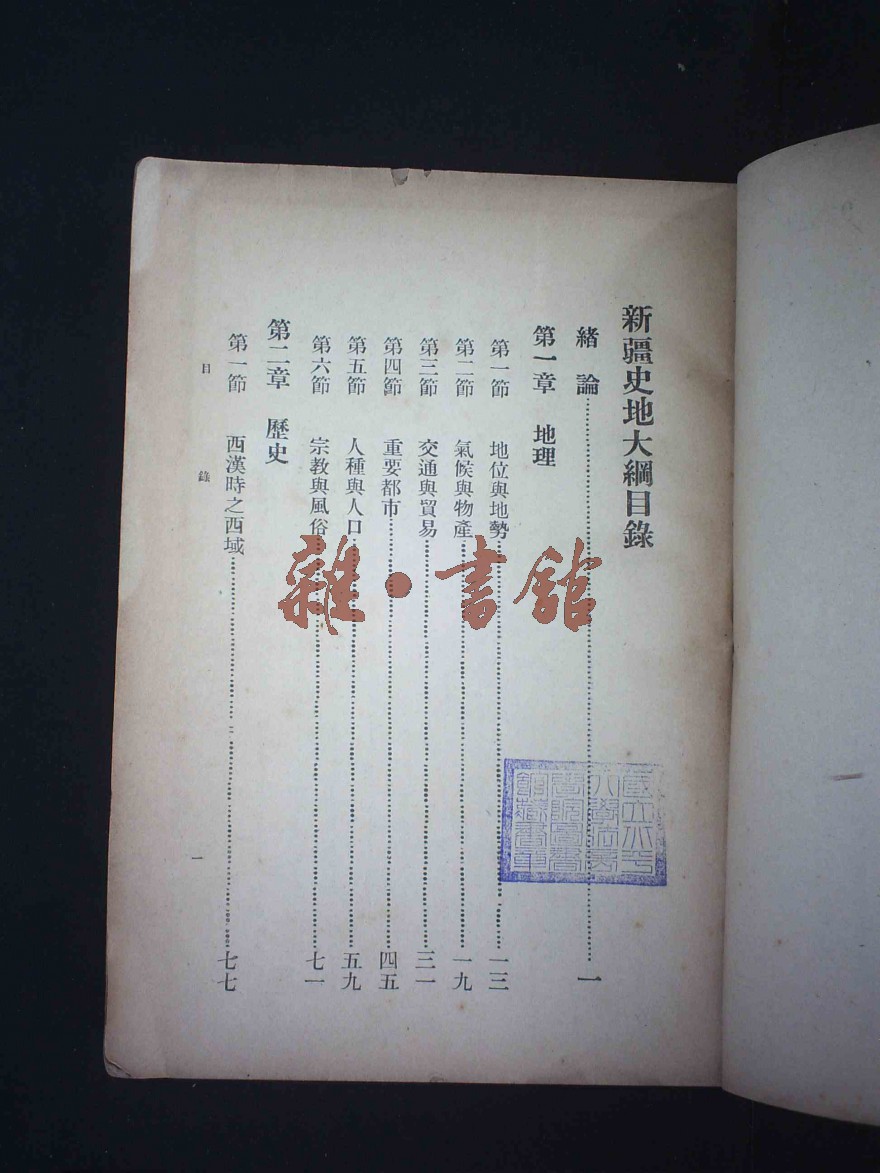 新疆史地大綱目錄
緒論……一
第一章 地理
第一節 地位與地勢……一三
第二節 氣候與物產……一九
第三節 交通與貿易……三一
第四節 重要都市……四五
第五節 人種與人口……五九
第六節 宗教與風俗……七一
第二章 歷史
第一節 西漢時之西域……七七
目錄
一
雜·書館
國立北平
大學法商
學院圖書
館藏書章